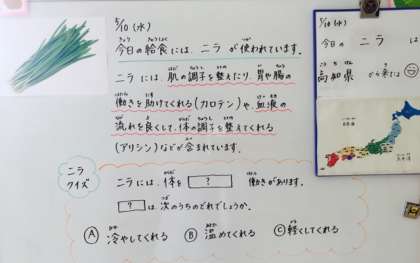 5/10 (水)
今日の給食には、ニラが使われています。
ニラには、肌の調子を整えたり、胃や腸の
働きを助けてくれる(カロテン)や、血液の
流れを良くして、体の調子を整えてくれる
(アリシン)などが含まれています。
ニラ
クイズ
ニラには、体を ? 働きがあります。
? は次のうちのどれでしょうか。
Ⓐ 冷やしてくれる Ⓑ 温めてくれる Ⓒ 軽くしてくれる
5/10 (水)
今日の ニラ は
高知県 から来た